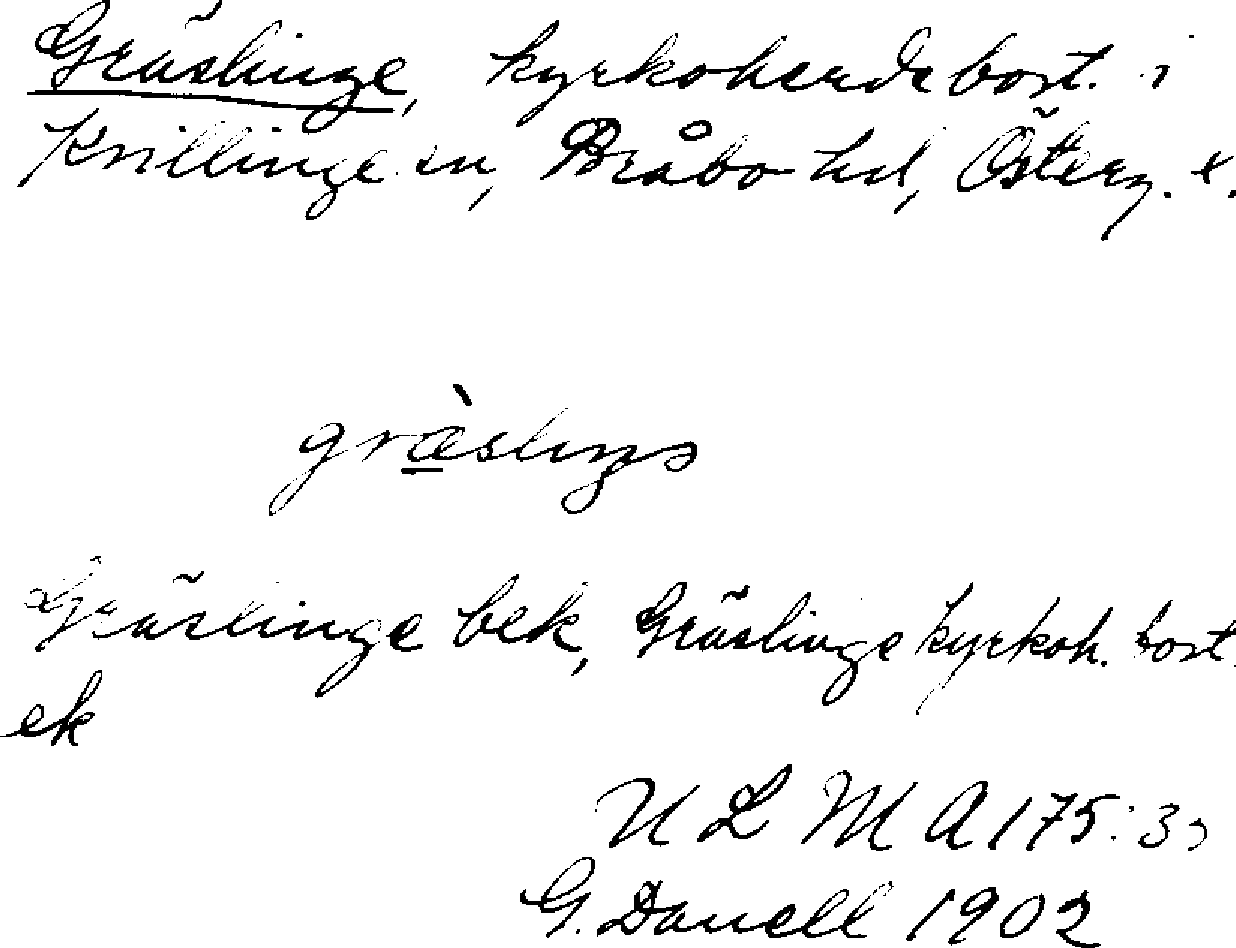 Gräslinge, kyrkoherdebost. i
Kvillinge sn, Bråbo hd, Österg. l.
græ̀slıŋə
Gräslinge bek, Gräslinge kyrkoh. bost.
ek
ULMA 175:3
G. Danell 1902